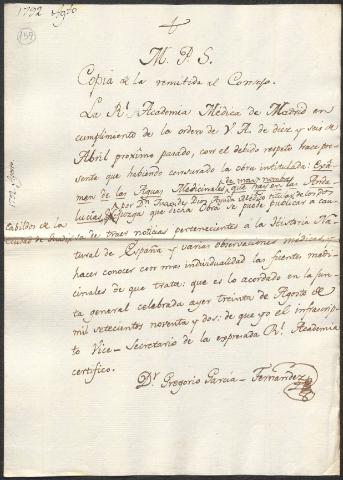 1792 Agto
159
M. P. S.
Copia de la remitida al Consejo.
La Rl. Academia Médica de Madrid en
cumplimiento de la orden de V. A. de diez y seis de
Abril proximo pasado, con el debido respeto hace pre-
sente que habiendo censurado la obra intitulada: Exâ-
de mas nombre
men de las Aguas Medicinales que hay en las Anda-
lucias, por Dn. Juan de Dios Ayuda Médico titular de los Dos
Cabildos de la
ciudad de Guadix
Juzga que dicha Obra se puede publicar a cau-
sa de traer noticias pertenecientes a la Historia Na-
tural de España y varias observaciones médicas, y
haces conocer con mas individualidad las fuentes medi-
cinales de que trata: que es lo acordado en la Jun-
ta general celebrada ayer treinta de Agosto de
mil setecientos noventa y dos: de que yo el infrascrip-
to Vice-Secretario de la expresada Rl. Academia
certifico.
Dr. Gregorio García-Fernandez